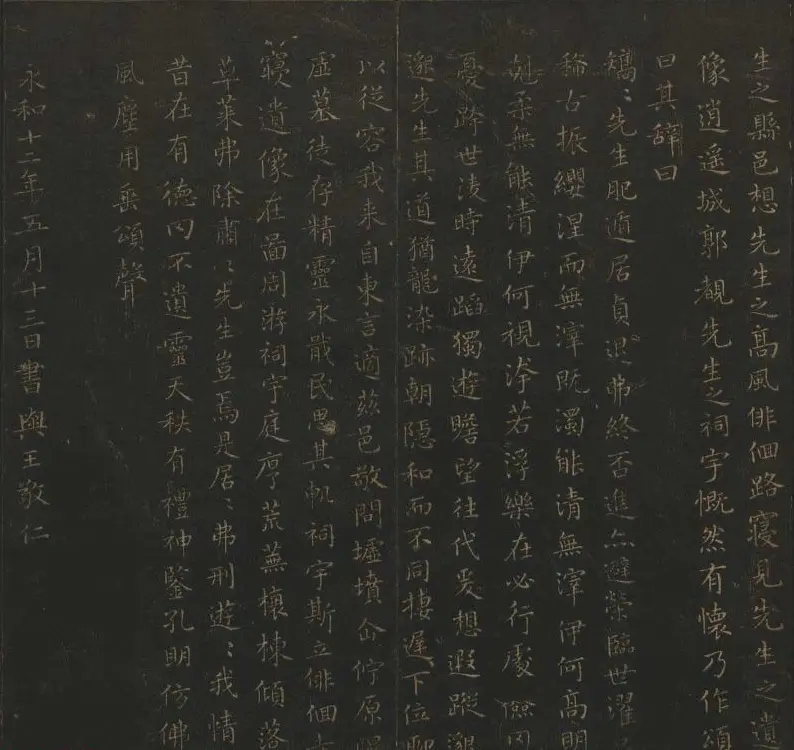 生之縣邑想先生之高風俳佪路寑見先生之遺
像逍遥城郭覩先生之祠宇慨然有懷乃作頌
曰其辭曰
矯〻先生肥遁居貞退弗終否進亦避榮臨世濯
稀古振纓涅而無滓既濁能清無滓伊何高明
剋柔無能清伊何視洿若浮樂在必行處儉罔
憂跨世淩時遠蹈獨遊瞻望往代爰想遐蹤邈
邈先生其道猶龍染跡朝隱和而不同棲遲下位聊
以從容我来自東言適茲邑敬問墟墳企佇原隰
虛墓徒存精靈永戢民思其軌祠宇斯立俳佪
寑遺像在啚周游祠宇庭序荒蕪榱棟傾落
草萊弗除肅〻先生豈焉是居〻弗刑遊〻我情
昔在有德罔不遺靈天秩有禮神鑒孔明仿佛
風塵用垂頌聲
永和十二年五月十三日書與王敬仁